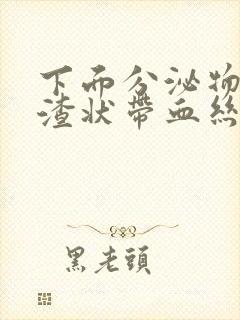 下面分泌物
渣狀帶血絲
黑老頭